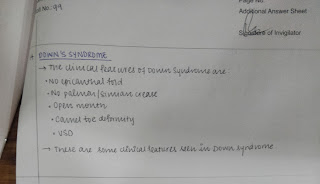 No: 99
Page No.
Additional Answer Sheet
Signature of Invigilator
DOWN'S SYNDROME
→ The clinical features of Down Syndrome are
• No epicanthal fold
• No palmar/simian crease
• Open mouth
• Camel toe deformity
• VSD
→ These are some clinical features seen in Down syndrome.